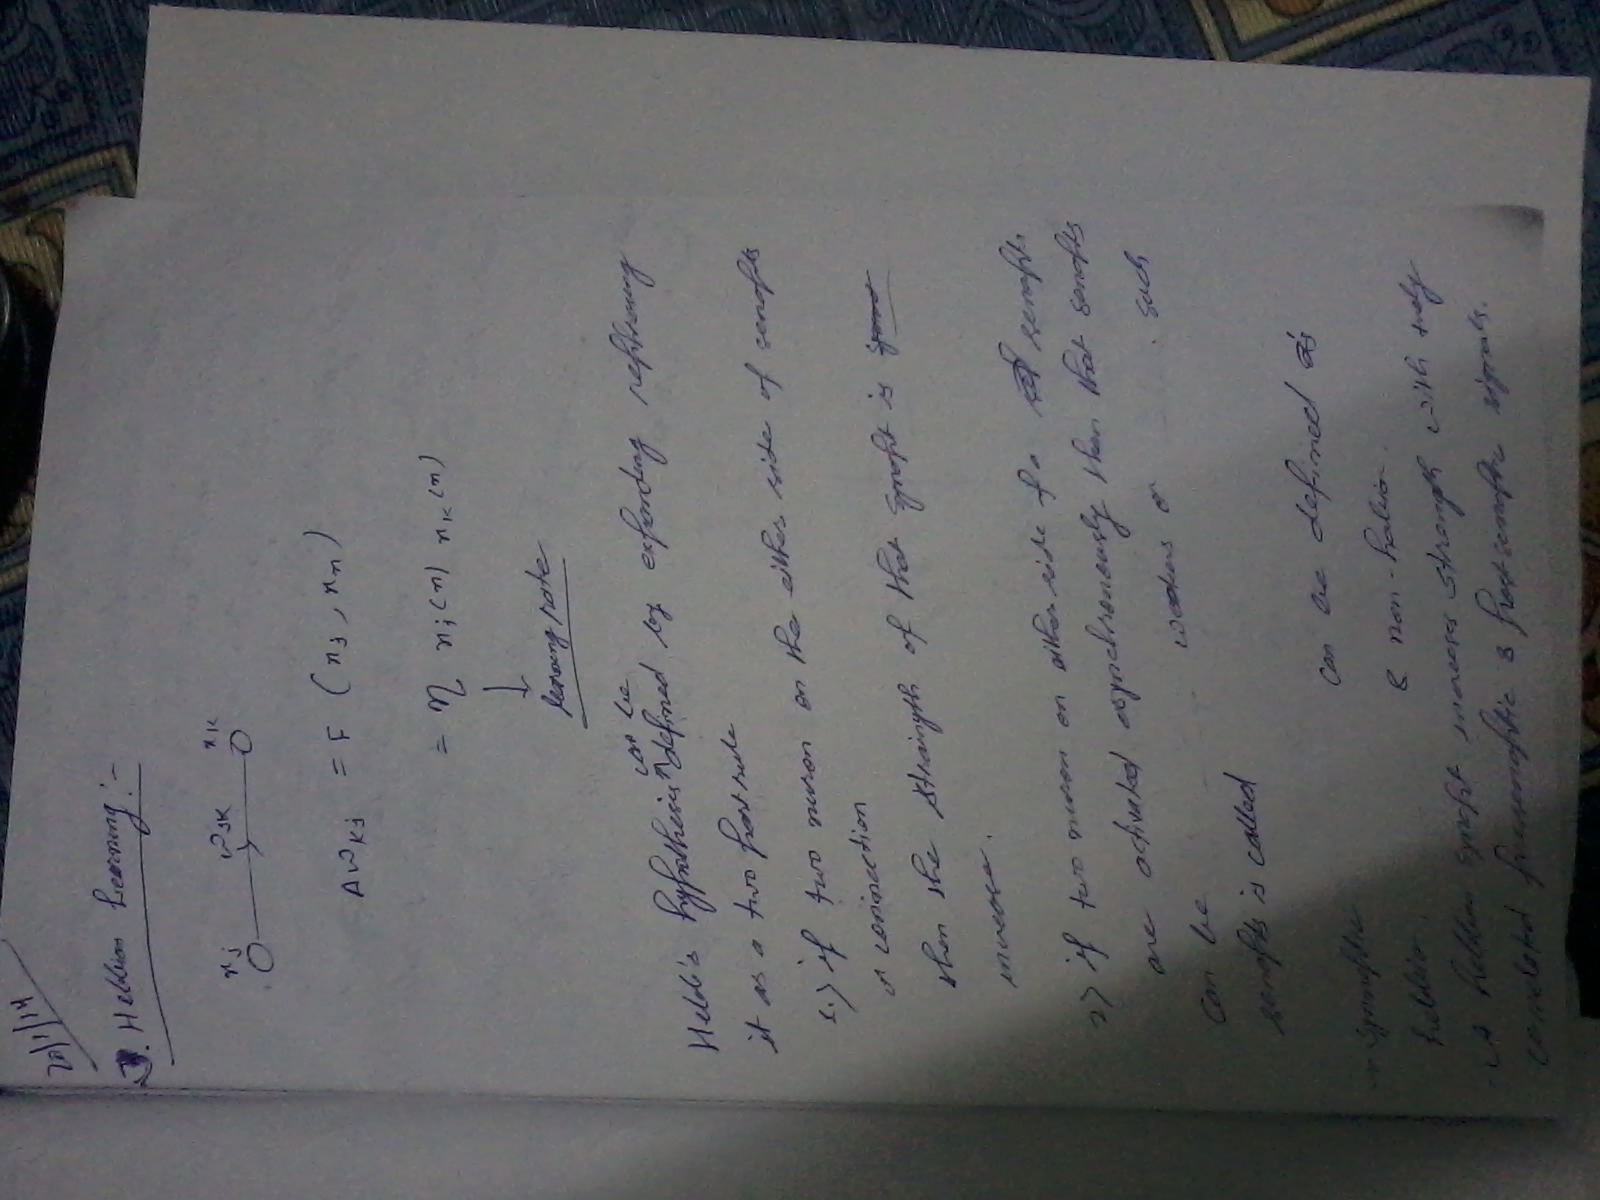 20/1/14
3. Hebbian Learning :-
xj wjk xk
Δwkj = F (xj, xn)
= η xj(n) xk(n)
↓
learning rate
can be
Hebb's hypothesis defined by expanding rephrasing
it as a two part rule
1.) if two nuron on the either side of senofits
or conninection
then the strength of that synofit is
increase.
2) if two nuron on either side of a senofits
are activated asynchronously then that senofits
can be weekens or such
senofits is called
can be defined as
→ Synoftic
hebbian, & non-hebion.
→ A hebbian synofit increses strength with
correlated presynoftic & postsenoftic signals.